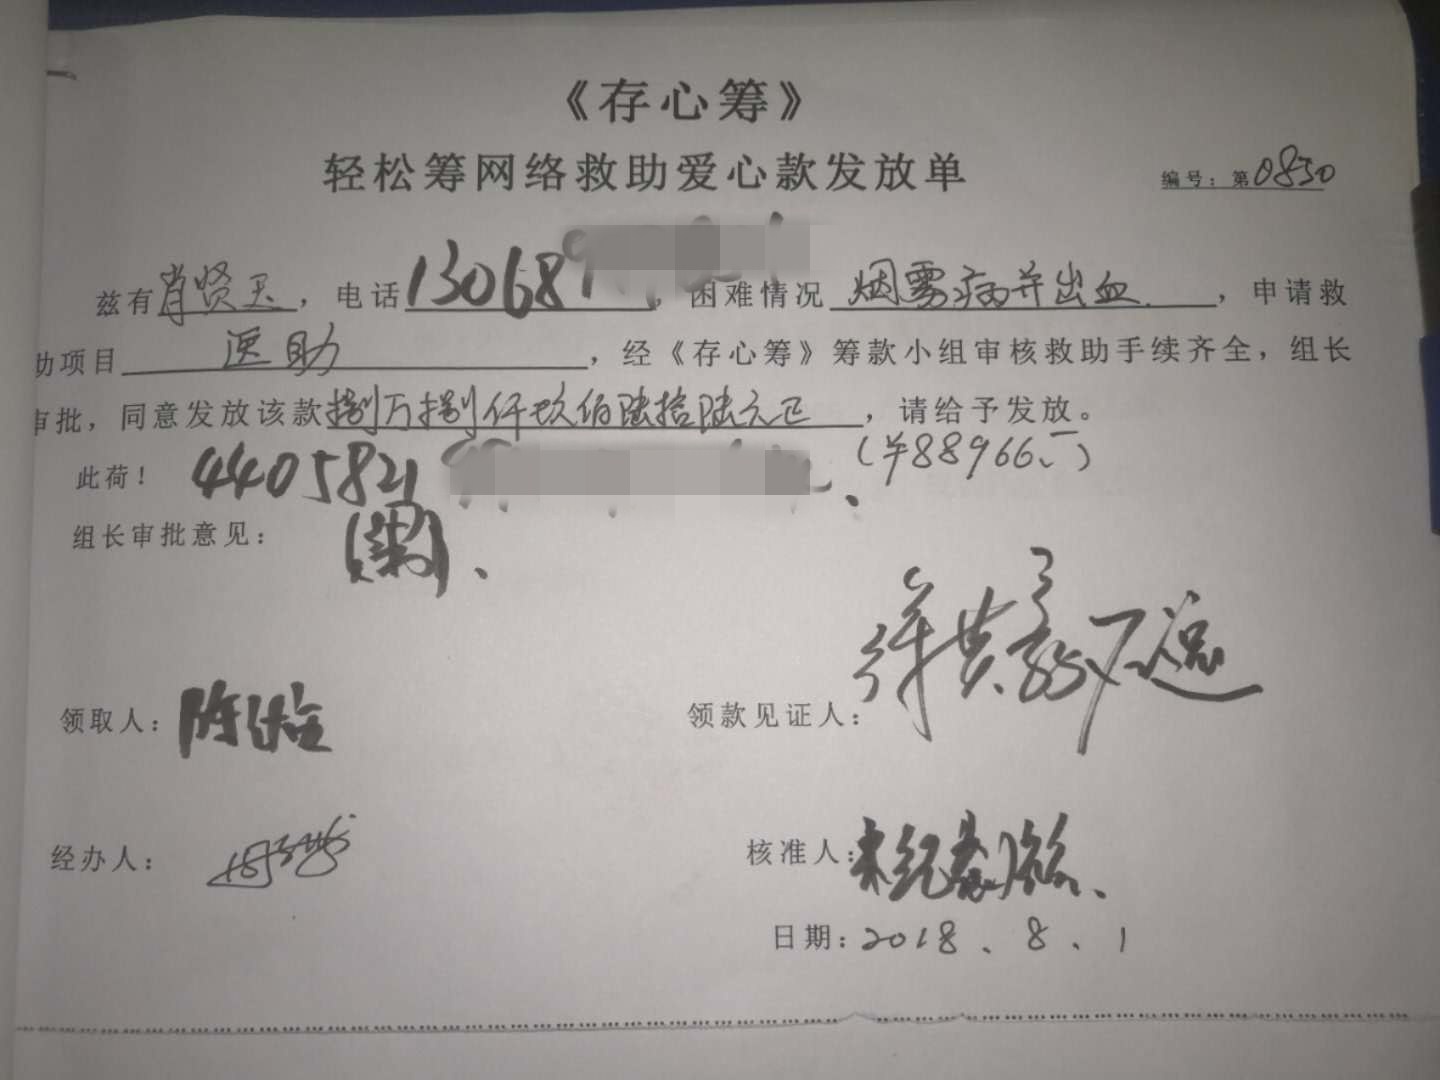 《存心筹》
轻松筹网络救助爱心款发放单
编号：第0850
兹有肖贤玉，电话13068，困难情况烟雾病并出血，申请救
助项目医助，经《存心筹》筹款小组审核救助手续齐全，组长
审批，同意发放该款捌万捌仟玖佰陆拾陆元正，请给予发放。
(¥88966.-)
此荷！ 4405821
组长审批意见：
领取人：陈
领款见证人：
经办人：
核准人：
日期：2018.8.1